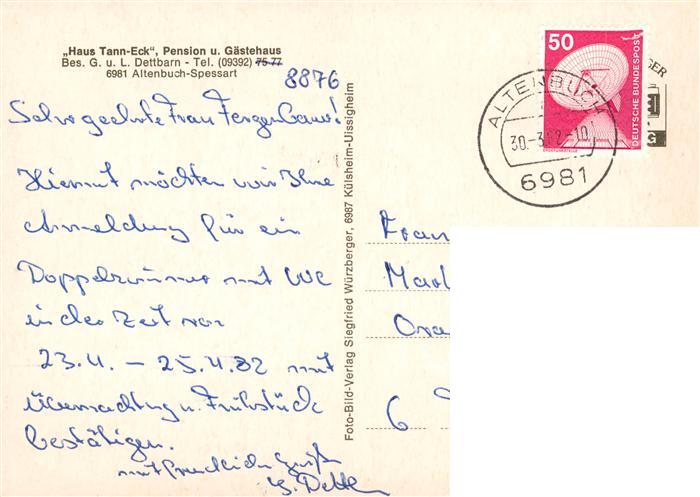 „Haus Tann-Eck“, Pension u. Gästehaus
Bes. G. u. L. Dettbarn - Tel. (09392) 75 77
6981 Altenbuch-Spessart
8876
Sehr geehrte Frau
Hiermit möchten wir Ihre
Anmeldung für ein
Doppelzimmer mit WC
in der Zeit von
23.4. – 25.4.82 mit
Übernachtung u. Frühstück
bestätigen.
mit freundlichen Grüßen
G. Dett
Foto-Bild-Verlag Siegfried Würzberger, 6987 Külsheim-Uissigheim
50
DEUTSCHE BUNDESPOST
ALTENBUCH
30.-3.82-10
6981
GER
G
Fran
Marl
Ora
6